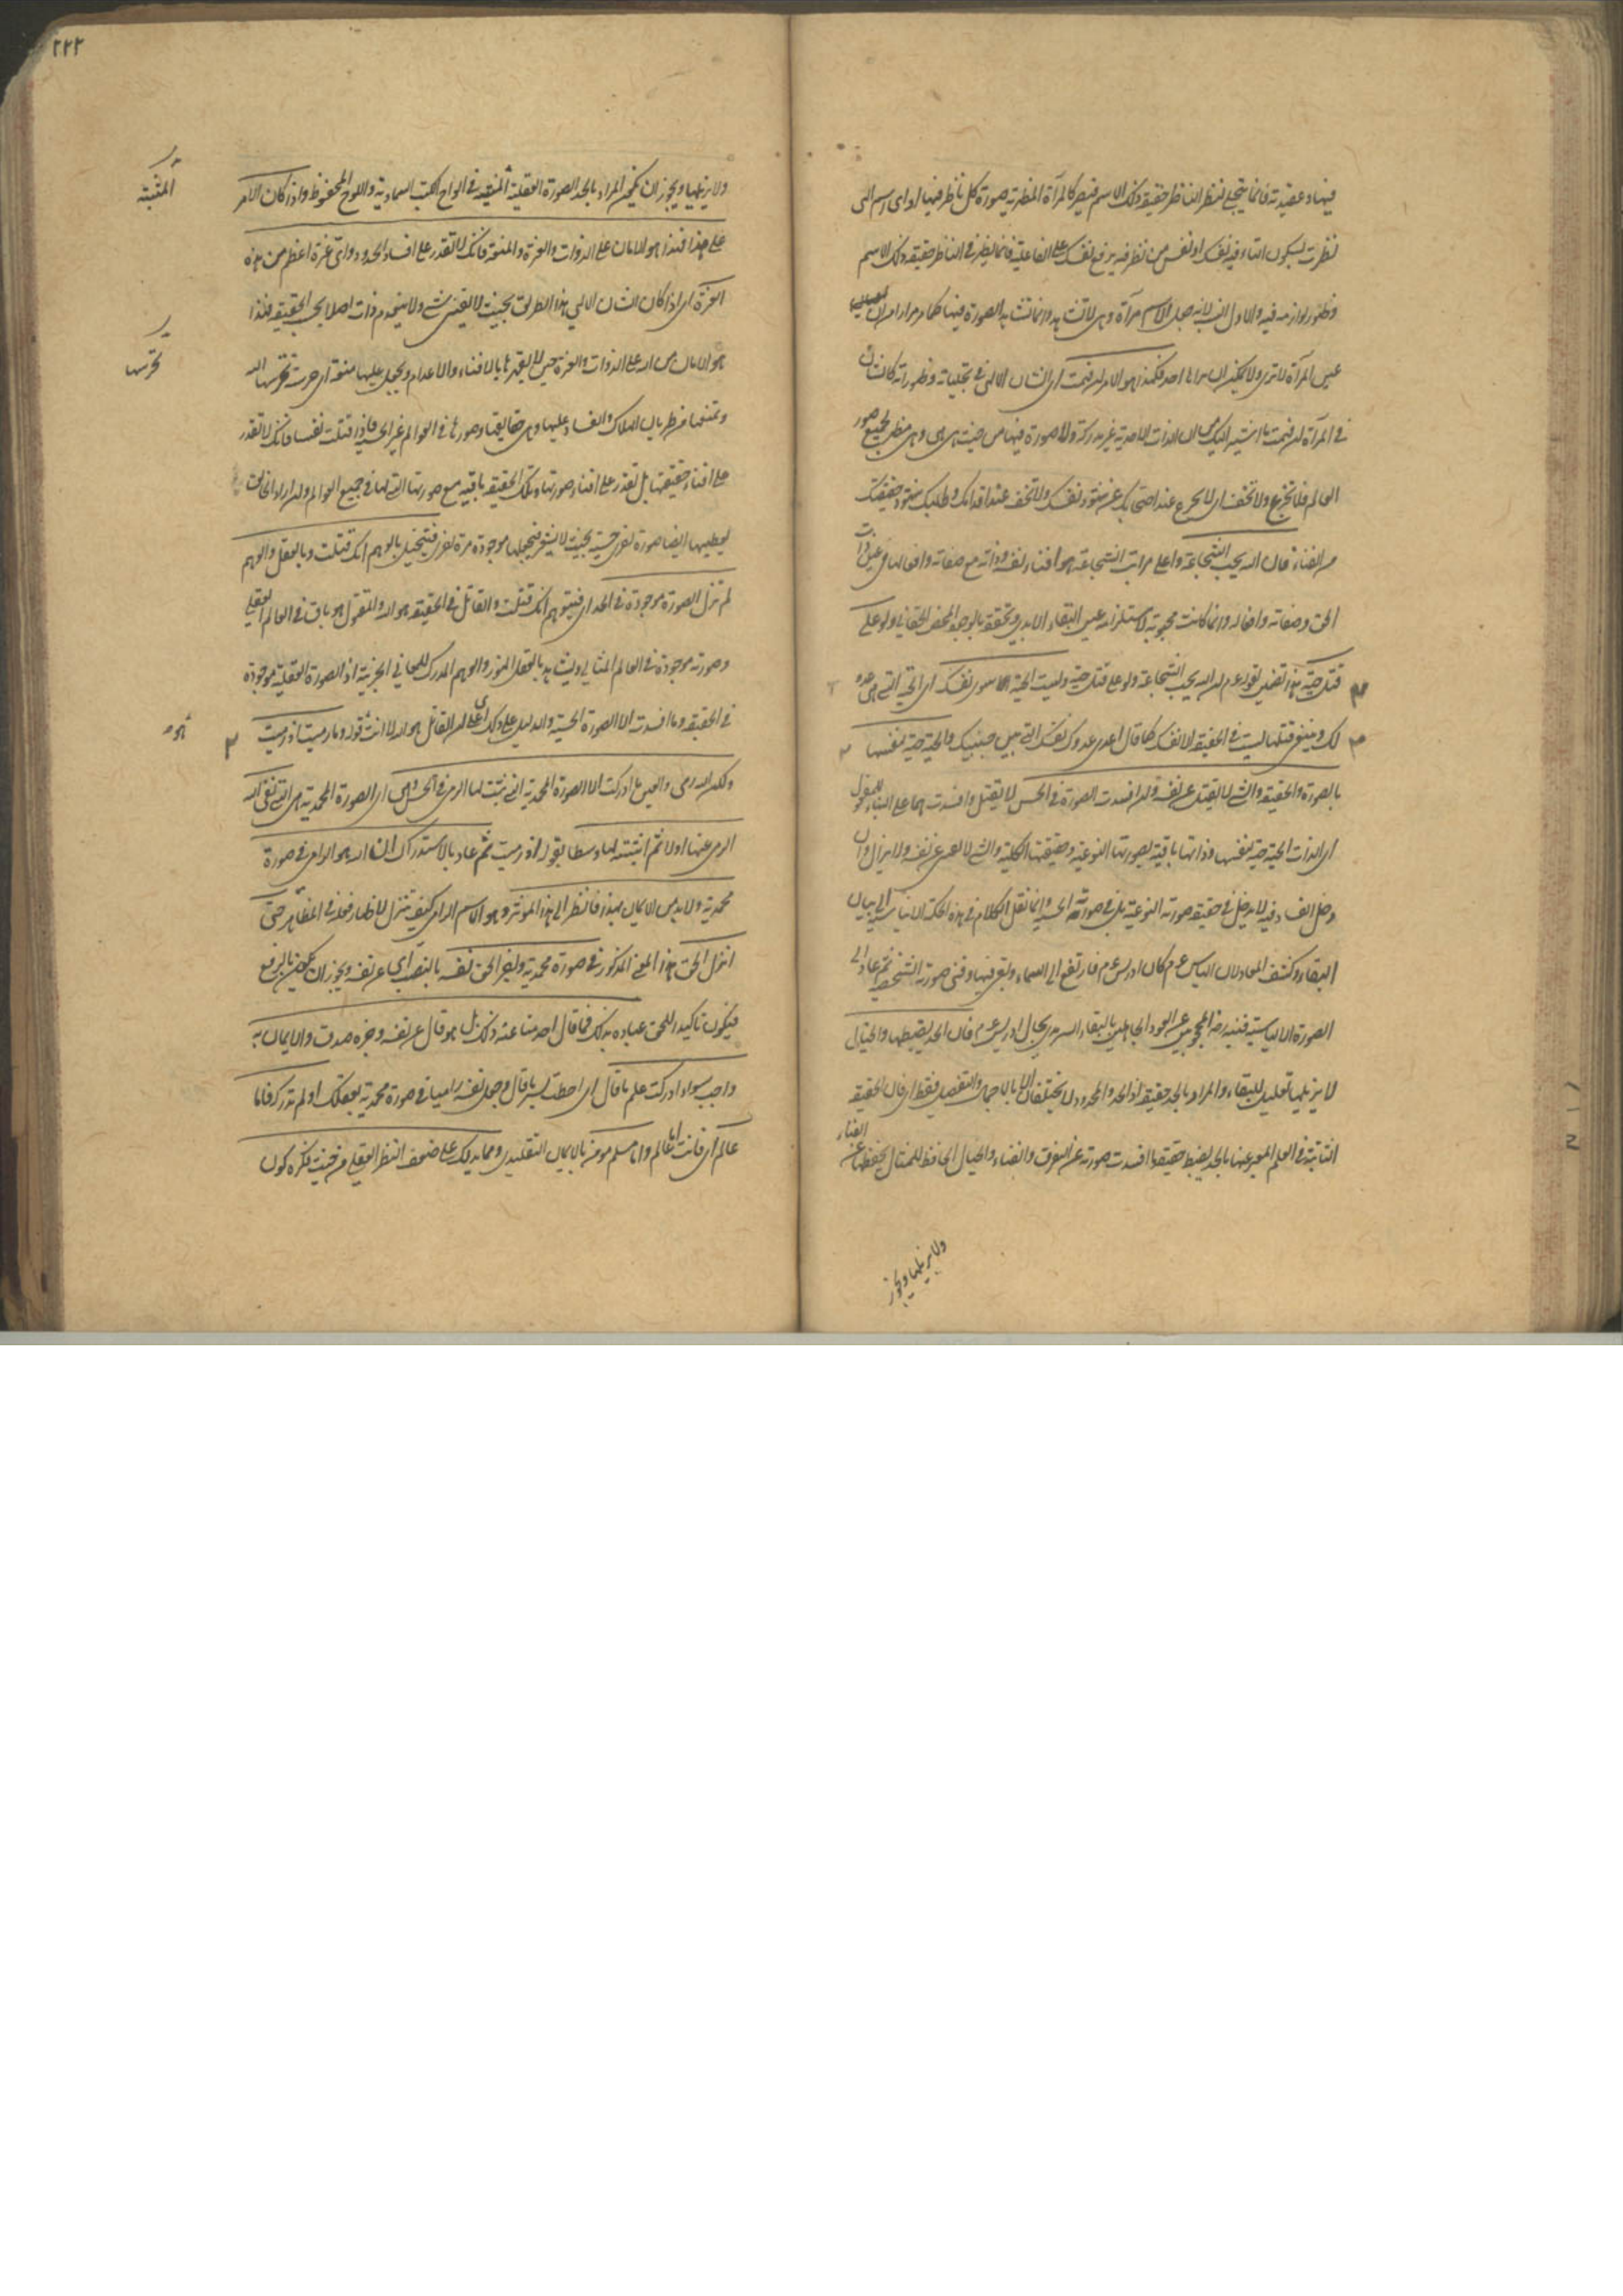 فيها وعقيدته فانما يتجلى لنظر الناظر حقيقة ذلك الاسم فيصير كالمرآة المظهرة صورة كل ناظر فيها لو اى رسم الى
نظرت بسكون التاء فيه نفسك او نفس من نظر فيه برفع نفسك على الفاعلية فانما يظهر فى الناظر حقيقة ذلك الاسم
وظهور لوازمه فيه والاول انسب لانه جعل الاسم مرآة وهى لا تشاهد وانما تشاهد الصورة فيها كما مر مرارا من ان
عين المرآة لا ترى ولا يمكن ان يراها احد فهكذا هو الامر ان فهمت اى الشان الالهى فى تجلياته وظهوراته كالشان
فى المرآة ان فهمت ما اشير اليك من ان الذات الاحدية غير مدركة ولا صورة فيها من حيث هى هى وهى مظهر لجميع صور
العالم فلا تجزع ولا تخف اى لا تجزع عند احتجابك عن شهود نفسك ولا تخف عند افنائك وطلبك شهود حقيقتك
من الفناء فان الله يحب الشجاعة واعلى مراتب الشجاعة هو افناء نفسه وذاته مع صفاته وافعالها فى عين ذات
الحق وصفاته وافعاله وانما كانت محبوبة لاستلزامه عين البقاء الابدى وتحققه بالوجود المحض الحقانى ولو على
قتل حية هذا تضمين لقوله عم ان الله يحب الشجاعة ولو على قتل حية وليست الحية سوى نفسك اى الحية التى هى عدو
لك وينبغى قتلها ليست فى الحقيقة الا نفسك كما قال اعدى عدوك نفسك التى بين جنبيك والحية حية لنفسها
بالصورة والحقيقة والشئ لا يقتل عن نفسه وان افسدت الصورة فى الحس لا يقتل وافسدت بها على البناء للمفعول
اى الذات الحية حية لنفسها وذاتها باقية بصورتها النوعية وحقيقتها الكلية والشئ لا يعدم عن نفسه ولا يزال وان
دخل الفساد فيه لا يدخل فى حقيقة صورته النوعية بل فى صورته الحسية وانما نقل الكلام فى هذه الحكمة الالياسية الى بيان
البقاء وكشف المعاد لان الياس عم كان ادريس عم فارتفع الى السماء وبقى فيها وفنى صورته الشخصية ثم عاد الى
الصورة الالياسية فنبه رضه المحجوبين عن العود الجاهلين بالبقاء السرمدى بحال ادريس عم فان الحد يضبطها والخيال
لا يزيلها تعليل للبقاء والمراد بالحد حقيقته اذ الحد والمحدود لا يختلفان الا بالاجمال والتفصيل فقط اى فان الحقيقة
الثابتة فى العلم المعبر عنها بالحد يضبط حقيقة ما افسدت صورته عن التفرق والفناء والخيال الحافظ للمثال يحفظها عن الفناء
ولا يزيلها ويجوز
٢٢٢
ولا يزيلها ويجوز ان يكون المراد بالحد الصورة العقلية المثبتة فى الواح الكتب السماوية واللوح المحفوظ واذا كان الامر
المثبتة
على هذا فهذا هو الامان على الذوات والعزة والمنعة فانك لا تقدر على افساد الحدود واى عزة اعظم من هذه
العزة اى اذا كان الشان الالهى بهذا الطريق بحيث لا يفنى شئ ولا ينعدم ذات اصلا بحسب الحقيقة فهذا
هو الامان من الله على الذوات والعزة حيث لا يقهرها بالافناء والاعدام ويجعل عليها منعة اى حرسة تحرسها الله
تحرسها
وتمنعها من طريان الهلاك والفساد عليها وهى حقايقها وصورها فى العوالم غير الحسية فاذا قتلت نفسا فانك لا تقدر
على افناء حقيقتها بل تقدر على افناء صورتها وتلك الحقيقة باقية مع صورتها التى لها فى جميع العوالم وان اراد الخالق
يعطيها ايضا صورة اخرى حسية بحيث لا يشعر فيجعلها موجودة مرة اخرى فتتخيل بالوهم انك قتلت وبالعقل والوهم
لم تزل الصورة موجودة فى الحد اى فيتوهم انك قتلت والقاتل فى الحقيقة هو الله والمقتول هو باق فى العالم العقلى
وصورته موجودة فى العالم المثالى ويشاهد بالعقل المنور والوهم المدرك للمعانى الجزئية اذ الصورة العقلية موجودة
فى الحقيقة وما افسدت الا الصورة الحسية والدليل على ذلك اى على ان القاتل هو الله لا انت قوله وما رميت اذ رميت
هو
ولكن الله رمى والعين ما ادركت الا الصورة المحمدية التى ثبت لها الرمى فى الحس وهى اى الصورة المحمدية هى التى نفى الله
الرمى عنها اولا ثم اثبته لها وسطا بقوله اذ رميت ثم عاد بالاستدراك ان الله هو الرامى فى صورة
محمدية ولا بد من الايمان بهذا فانظر الى هذا المؤثر وهو الاسم الرامى كيف تنزل لاظهار فعله فى المظاهر حتى
انزل الحق هذا المعنى المذكور فى صورة محمدية واخبر الحق نفسه بالنصب اى عن نفسه ويجوز ان يكون بالرفع
فيكون تاكيدا للحق عباده بذلك فما قال احد منا عنه ذلك بل هو قال عن نفسه وخبره صدق والايمان به
واجب سواء ادركت علم ما قال اى احطت بسر ما قال وجعل نفسه راميا فى صورة محمدية بعقلك او لم تدركه فاما
عالم اى فانت اما عالم واما مسلم مؤمن بالايمان التقليدى ومما يدلك على ضعف النظر العقلى من حيث فكره كون